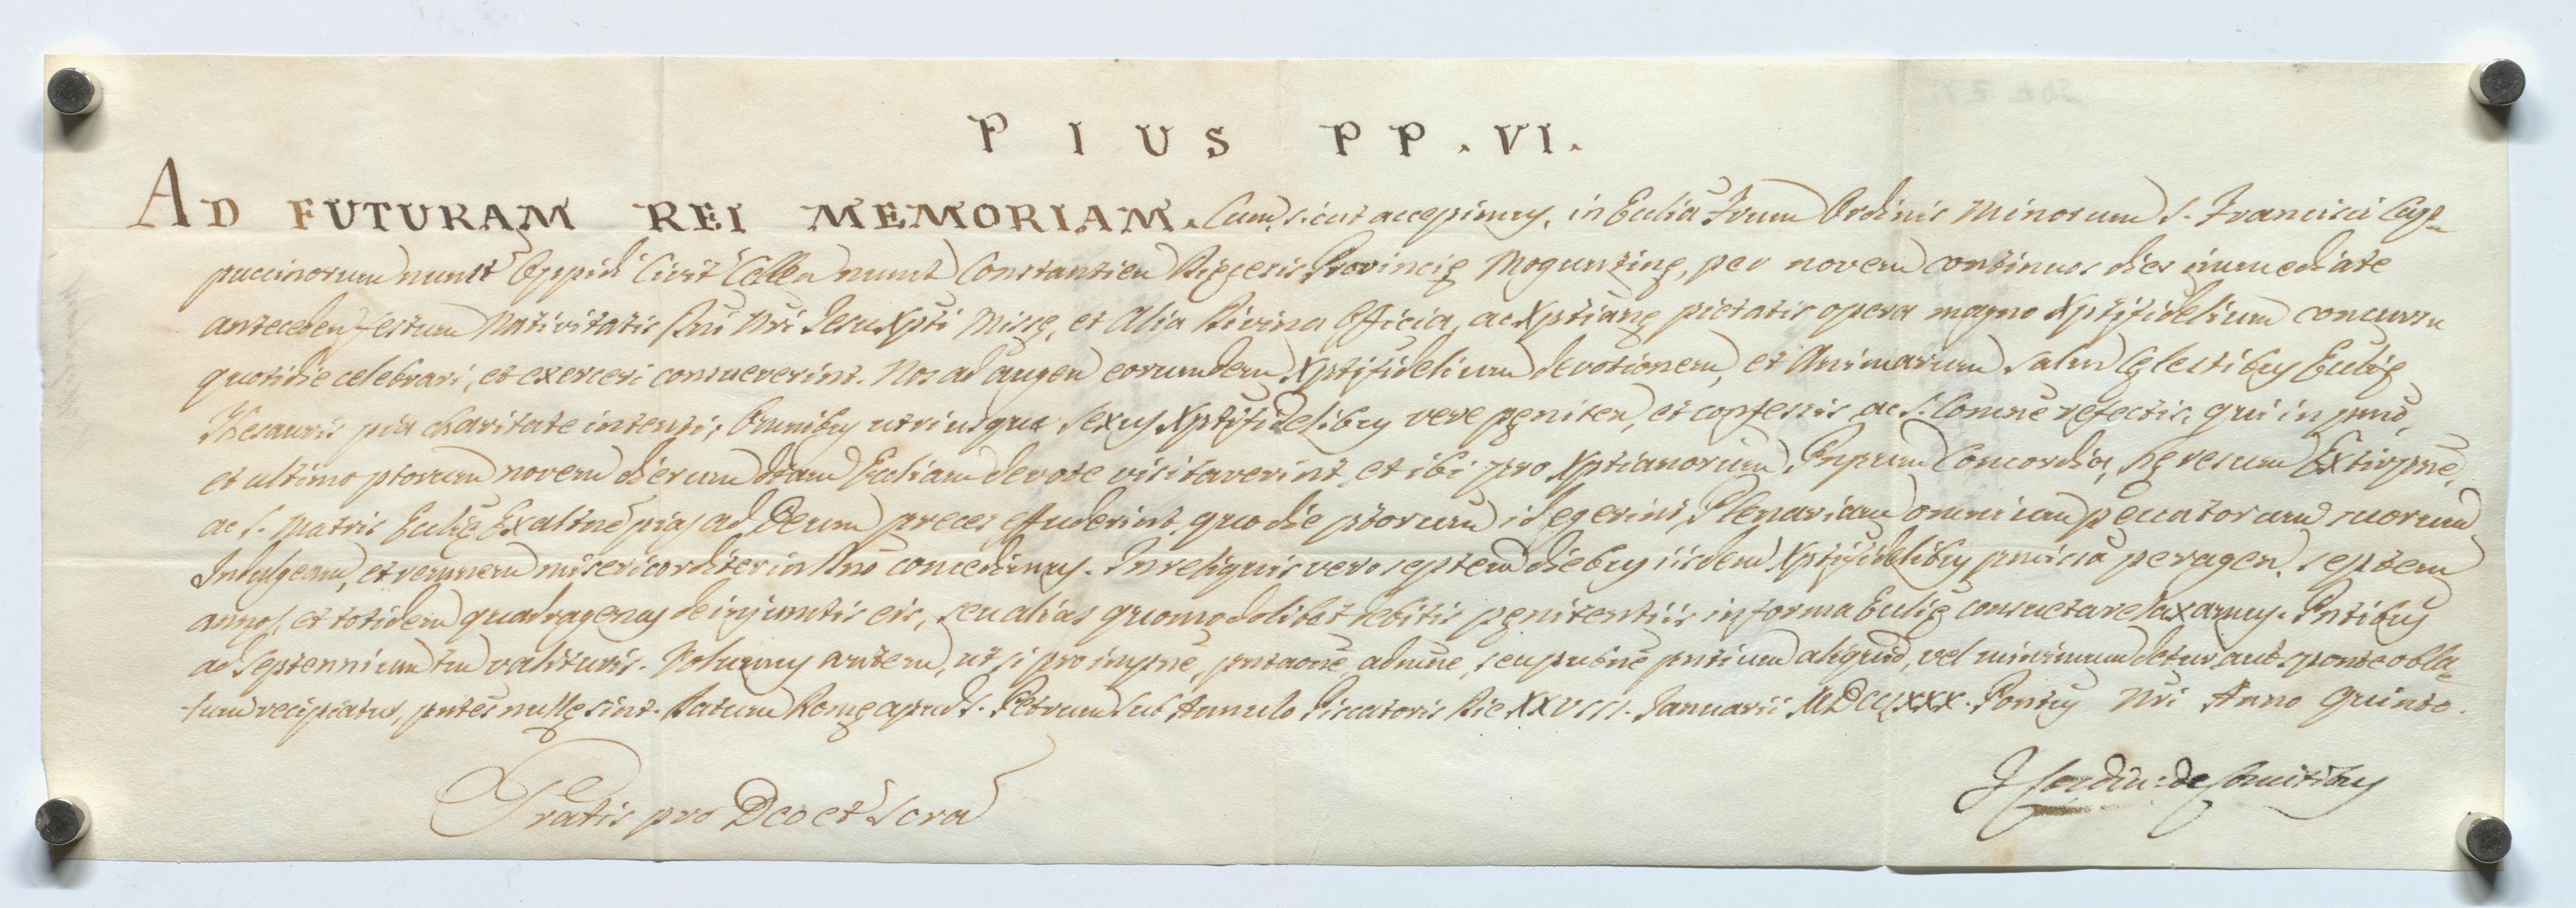 PIUS PP. VI.
AD FUTURAM REI MEMORIAM. Cum, sicut accepimus, in Ecclia Frum Ordinis Minorum S. Francisci Cap-
puccinorum nunct Oppidi Civit Cellen nunct Constantien Diecesis Provincię Moguntinę, per novem continuos dies immediate
anteceden festum Nativitatis Dni Nri Jesu Xpti Missę, et alia Divina Officia, ac Xptianę pietatis opera magno Xptifidelium concursu
quotidie celebrari, et exerceri consueverint. Nos ad augen eorumdem Xptifidelium devotionem, et Animarum salun Cęlestibus Ecclię
Thesauris pia charitate intenti, Omnibus utriusque sexus Xptifidelibus vere pęniten, et confessis, ac S. Comune refectis, qui in primo,
et ultimo ptorum novem dierum dtam Eccliam devote visitaverint, et ibi pro Xptianorum Pnpum Concordia, hęresum Extirpne,
ac S. Matris Ecclię Exaltne pias ad Deum preces effuderint, quo die ptorum id egerint, Plenariam omnium peccatorum suorum
Indulgeam, et remnem misericorditer in Dno concedimus. In reliquis vero septem diebus iisdem Xptifidelibus pmissa peragen, septem
annos, et totidem quadragenas de injunctis eis, seu alias quomodolibet debitis pęnitentiis in forma Ecclię consueta relaxamus. Pntibus
ad Septennium tm valituris. Volumus autem, ut si pro impne, pntaone, admne, seu pubne pntium aliquid, vel minimum detur, aut sponte obla-
tum recipiatur, pntes nullę sint. Datum Romę apud S. Petrum sub Annulo Piscatoris Die XXVIII. Januarii MDCCLXXX. Pontus Nri Anno Quinto.
Gratis pro Deo et Scra
de Comitibus